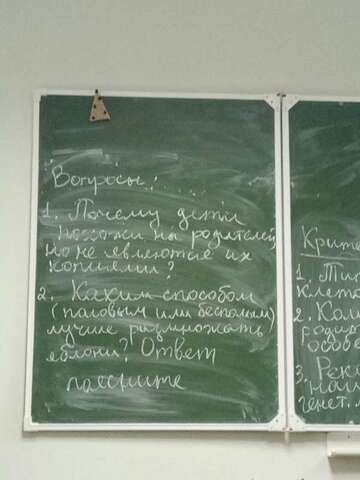 Вопросы:
1. Почему дети
похожи на родителей
но не являются их
копиями?
2. Каким способом
(половым или бесполым)
лучше размножать
яблони? Ответ
поясните
Крите
1. Тип
клето
2. Кол
родит
особе
3. Реко
генет.